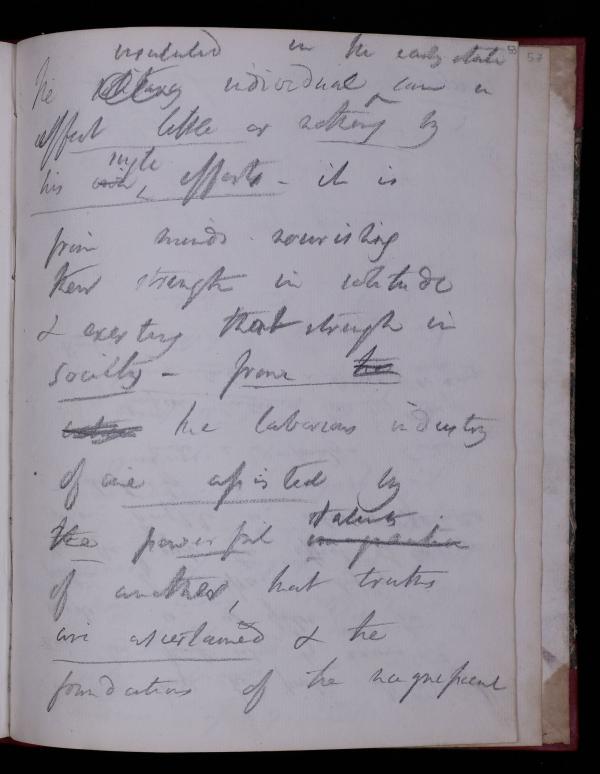 insulated in the early state 58 57
The solitary individual can
effect little or nothing by
his single efforts - it is
from minds nourishing
their strength in solitude
& exerting that strength in
society - from the
the laborious industry
of one assisted by
the powerful talents
of another, that truths
are ascertained & the
foundations of the magnificent